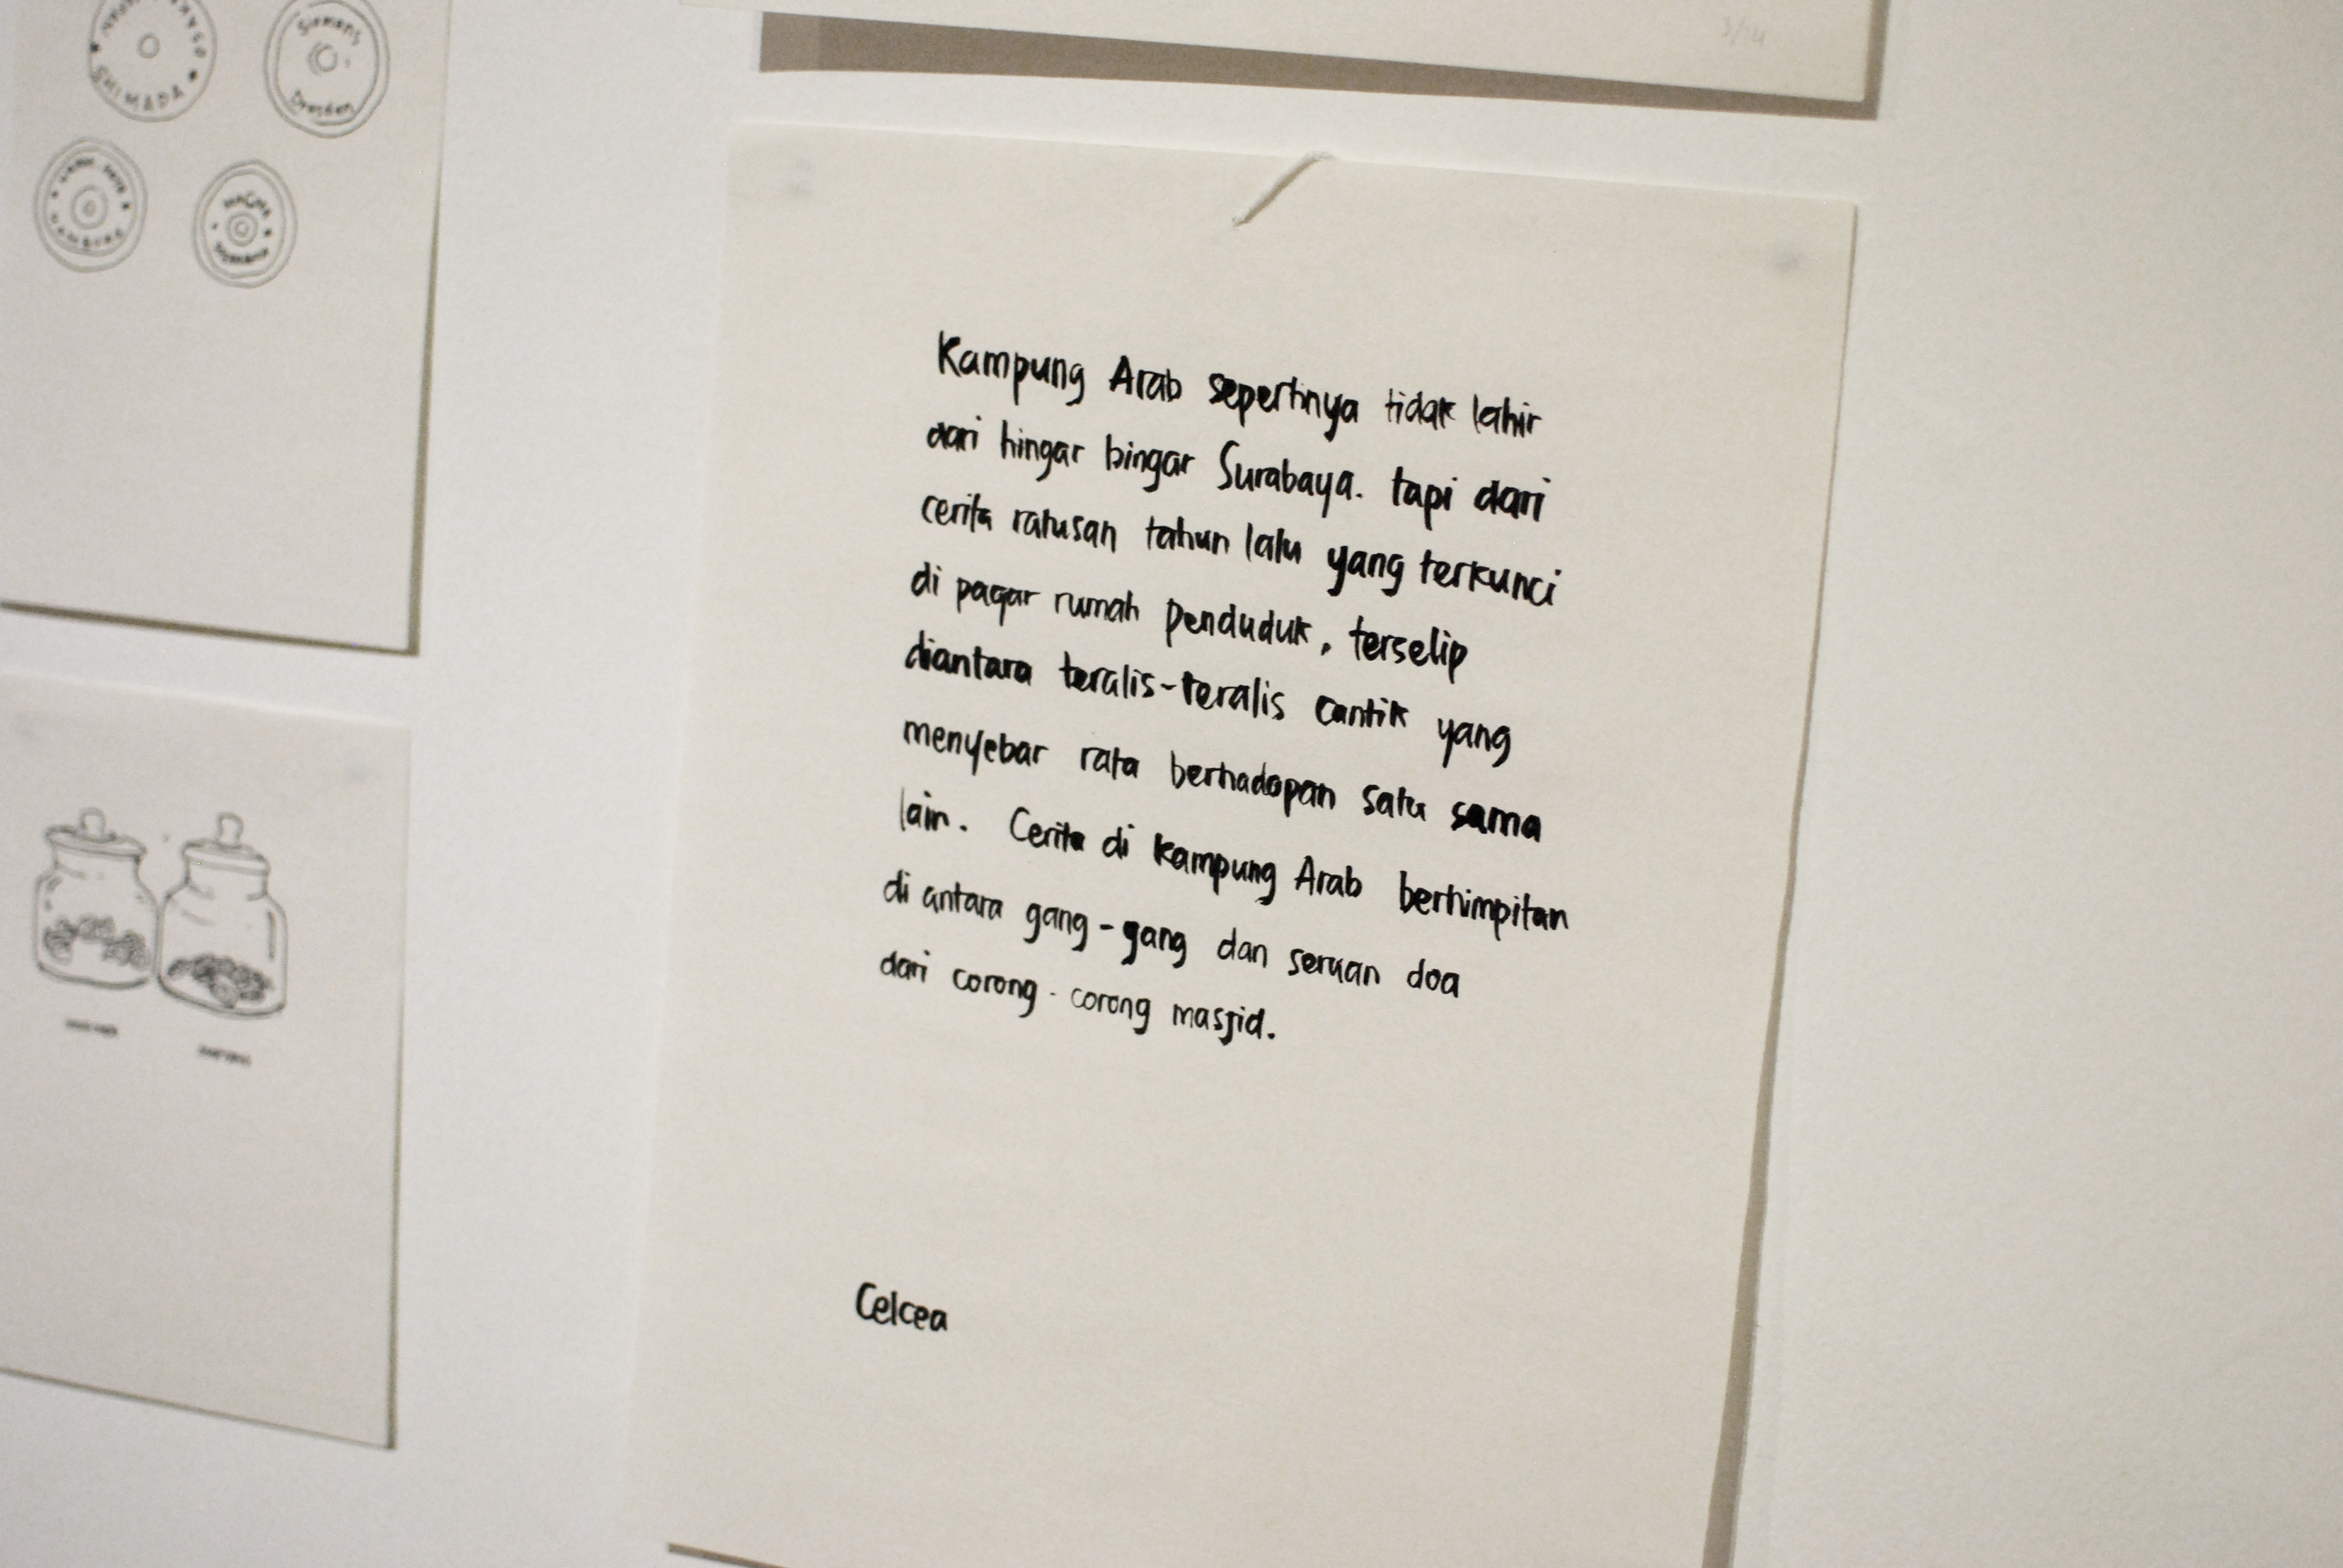 SHIMADA
Siemens
Dresden
3/14
Kampung Arab sepertinya tidak lahir
dari hingar bingar Surabaya. tapi dari
cerita ratusan tahun lalu yang terkunci
di pagar rumah penduduk, terselip
diantara teralis-teralis cantik yang
menyebar rata berhadapan satu sama
lain. Cerita di Kampung Arab berhimpitan
di antara gang-gang dan seruan doa
dari corong-corong masjid.
Celcea